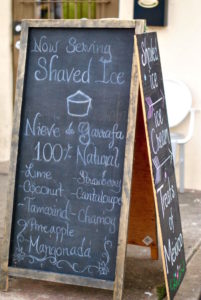 Now Serving
Shaved Ice
Nieve de Garrafa
100% Natural
Lime Strawberry
-Coconut -Cantaloupe
-Tamarind -Chamoy
-Pineapple
Mangonada
Shaved
ice
Ice
Cream
Treats
of
Mexico